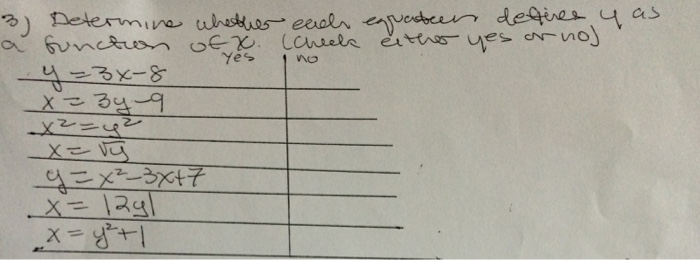 3) Determine whether each equation defines y as
a function of x. (Check either yes or no)
yes no
y = 3x-8
x = 3y-9
x² = y²
x = √y
y = x²-3x+7
x = |2y|
x = y²+1